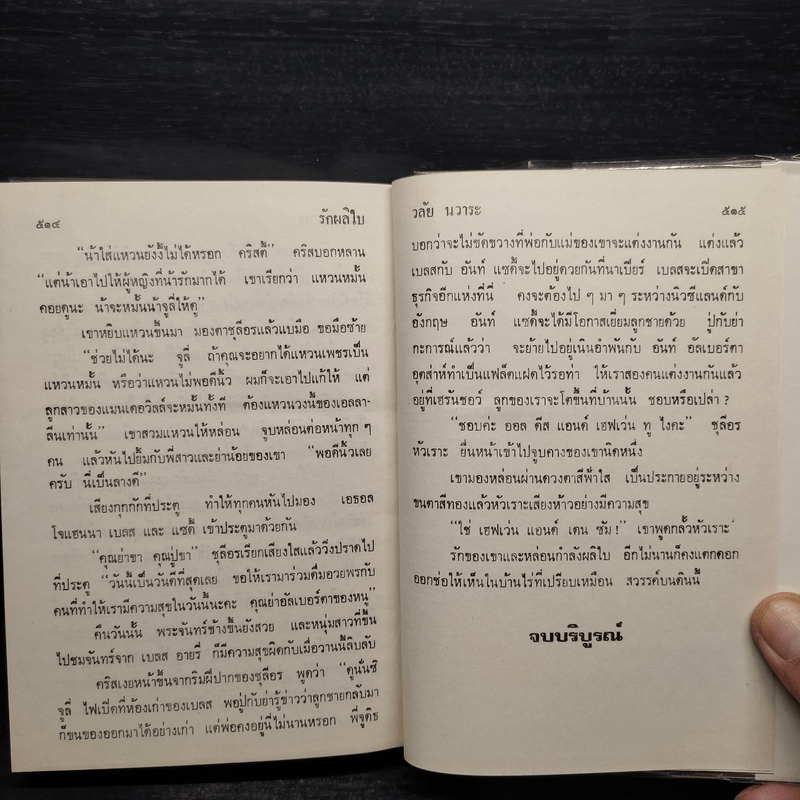 ๕๑๔ รักผลิใบ
“น้าใส่แหวนยังงี้ไม่ได้หรอก คริสตี้” คริสบอกหลาน
“แต่น้าเอาไปให้ผู้หญิงที่น้ารักมากได้ เขาเรียกว่า แหวนหมั้น
คอยดูนะ น้าจะหมั้นน้าจูลี่ให้ดู”
เขาหยิบแหวนขึ้นมา มองตาชุลีอรแล้วแบมือ ขอมือซ้าย
“ช่วยไม่ได้นะ จูลี่ ถ้าคุณจะอยากได้แหวนเพชรเป็น
แหวนหมั้น หรือว่าแหวนไม่พอดีนิ้ว ผมก็จะเอาไปแก้ให้ แต่
ลูกสาวของแมนเดอวิลล์จะหมั้นทั้งที ต้องแหวนวงนี้ของเอลลา-
ลีนเท่านั้น” เขาสวมแหวนให้หล่อน จูบหล่อนต่อหน้าทุก ๆ
คน แล้วหันไปยิ้มกับพี่สาวและย่าน้อยของเขา “พอดีนิ้วเลย
ครับ นี่เป็นลางดี”
เสียงกุกกักที่ประตู ทำให้ทุกคนหันไปมอง เอธอล
โจแฮนนา เบลส และ แซดี้ เข้าประตูมาด้วยกัน
“คุณย่าขา คุณปู่ขา” ชุลีอรเรียกเสียงใสแล้ววิ่งปราดไป
ที่ประตู “วันนี้เป็นวันดีที่สุดเลย ขอให้เรามาร่วมดื่มอวยพรกับ
คนที่ทำให้เรามีความสุขในวันนี้นะคะ คุณย่าอัลเบอร์ตาของหนู”
คืนวันนั้น พระจันทร์ข้างขึ้นยังสวย และหนุ่มสาวที่ขึ้น
ไปชมจันทร์จาก เบลส อายรี่ ก็มีความสุขผิดกับเมื่อวานนี้ลิบลับ
คริสเงยหน้าขึ้นจากริมฝีปากของชุลีอร พูดว่า “ดูนั่นซิ
จูลี่ ไฟเปิดที่ห้องเก่าของเบลส พอปู่กับย่ารู้ข่าวว่าลูกชายกลับมา
ก็ขนของออกมาไว้อย่างเก่า แต่พ่อคงอยู่นี่ไม่นานหรอก พี่จูดิธ
วลัย นวาระ ๕๑๕
บอกว่าจะไม่ขัดขวางที่พ่อกับแม่ของเขาจะแต่งงานกัน แต่งแล้ว
เบลสกับ อันท์ แซดี้จะไปอยู่ด้วยกันที่นาเบียร์ เบลสจะเปิดสาขา
ธุรกิจอีกแห่งที่นี่ คงจะต้องไป ๆ มา ๆ ระหว่างนิวซีแลนด์กับ
อังกฤษ อันท์ แซดี้จะได้มีโอกาสเยี่ยมลูกชายด้วย ปู่กับย่า
กะการณ์แล้วว่า จะย้ายไปอยู่เนินอำพันกับ อันท์ อัลเบอร์ตา
อุตส่าห์ทำเป็นแฟล็ตแฝดไว้รอท่า ให้เราสองคนแต่งงานกันแล้ว
อยู่ที่เฮรันชอว์ ลูกของเราจะโตขึ้นที่บ้านนั้น ชอบหรือเปล่า ?
“ชอบค่ะ ออล ดีส แอนด์ เฮฟเว่น ทู ไงคะ” ชุลีอร
หัวเราะ ยื่นหน้าเข้าไปจูบคางของเขานิดหนึ่ง
เขามองหล่อนผ่านดวงตาสีฟ้าใส เป็นประกายอยู่ระหว่าง
ขนตาสีทองแล้วหัวเราะเสียงห้าวอย่างมีความสุข
“ใช่ เฮฟเว่น แอนด์ เดน ซัม !” เขาพูดกลั้วหัวเราะ
รักของเขาและหล่อนกำลังผลิใบ อีกไม่นานก็คงแตกดอก
ออกช่อให้เห็นในบ้านไร่ที่เปรียบเหมือน สวรรค์บนดินนี้
จบบริบูรณ์